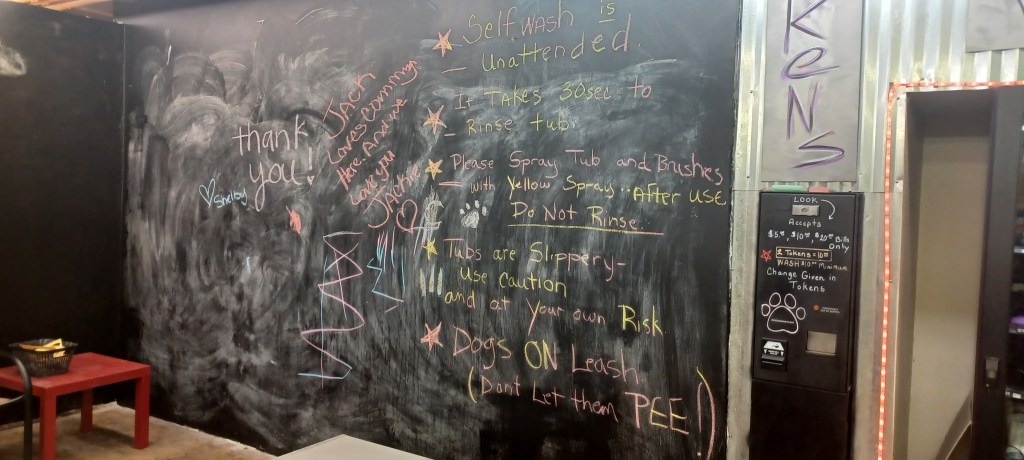 thank
you!
Shelby
JACK
Loves Coming
Here. And we
Love you
JACK
Self wash is
Unattended
It TAKES 30sec to
Rinse tub.
Please Spray Tub and Brushes
with Yellow Spray.. AFTER USE
Do Not Rinse.
Tubs are Slippery-
use caution
and at your own Risk
Dogs ON Leash
(Dont Let them PEE!)
KeNS
LOOK
Accepts
$5.00, $10.00, $20.00 Bills
Only
2 Tokens = 10.00
WASH $10.00 Minimum
Change Given in
Tokens